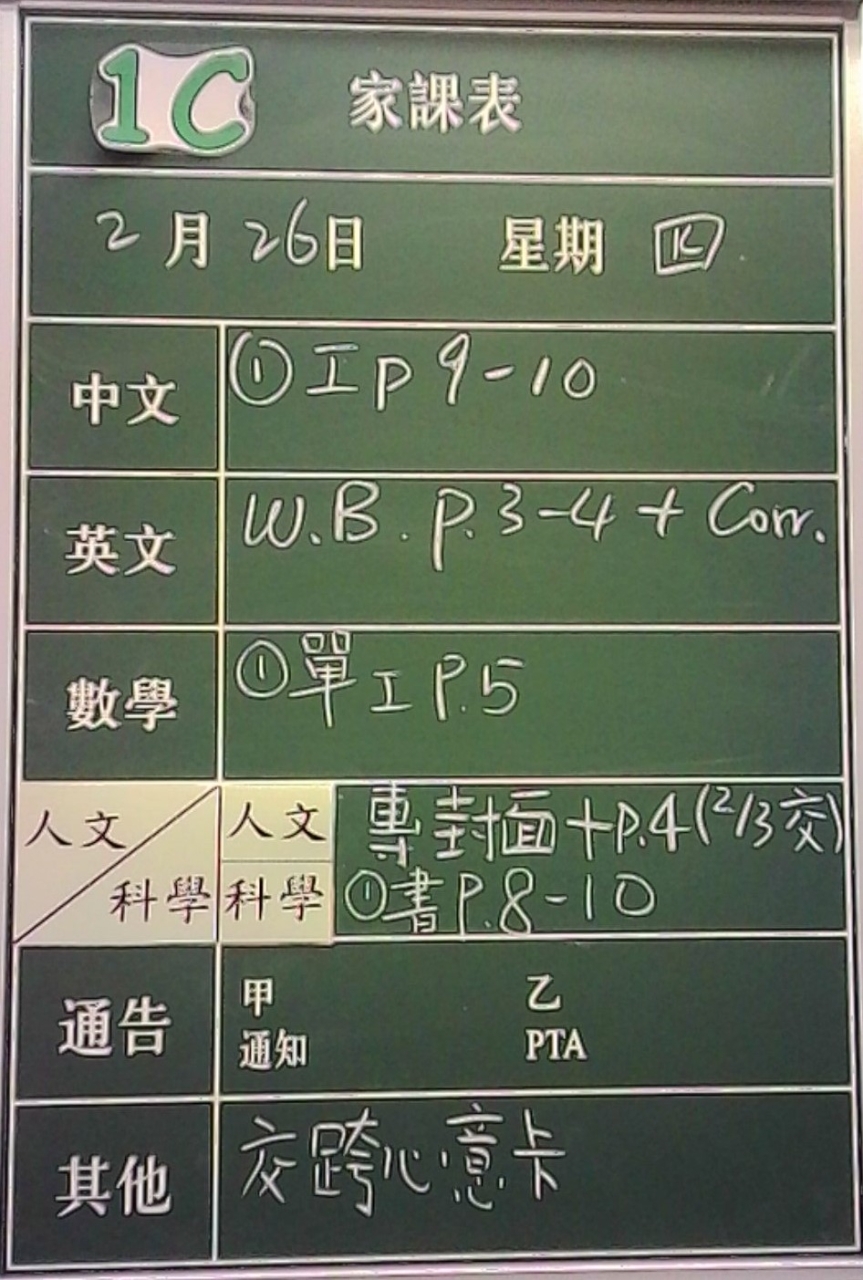 1C 家課表
2月26日 星期四
中文 ①工p 9-10
英文 W.B. p.3-4 + Corr.
數學 ①單工 P.5
人文 科學
人文 專封面+p.4(2/3交)
科學 ①書P.8-10
通告
甲 乙
通知 PTA
其他 交跨心意卡